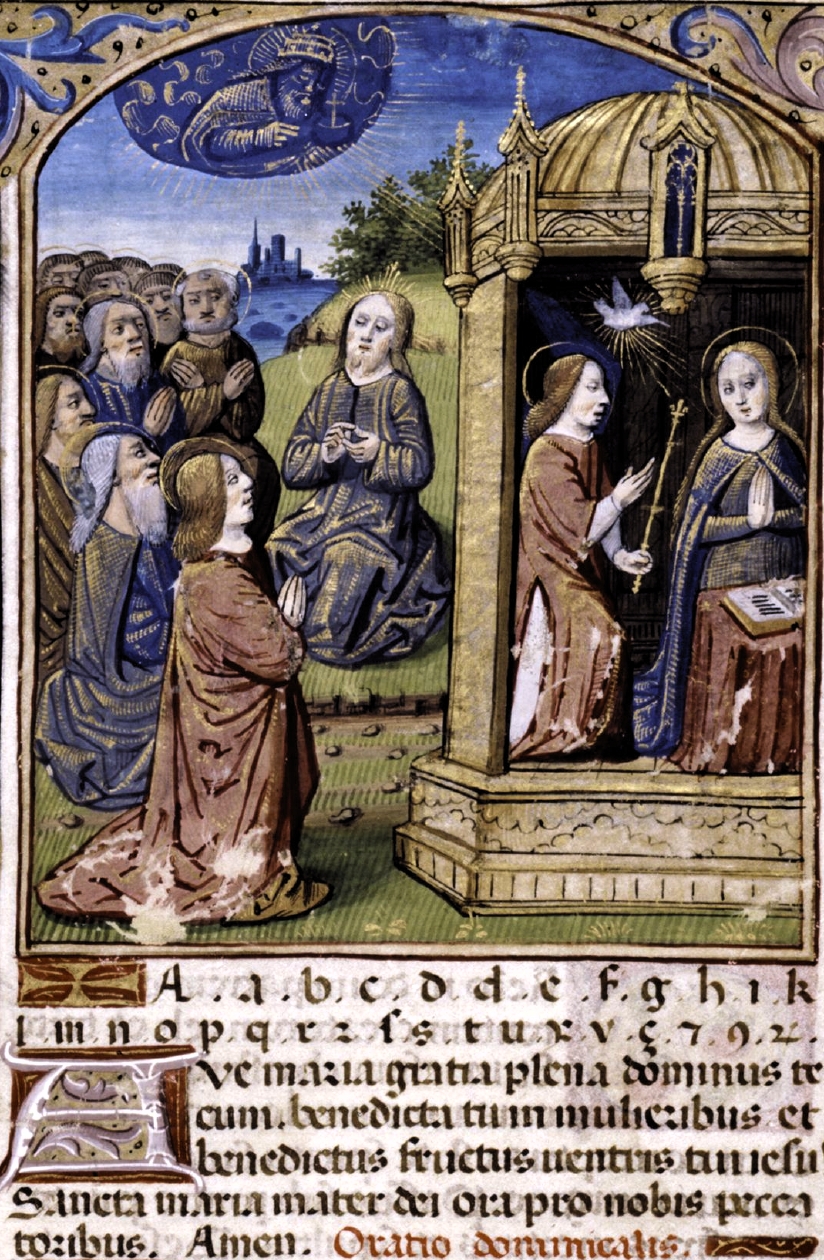 A. a. b. c. d. d. e. f. g. h. i. k
l. m. n. o. p. q. r. ꝛ. ſ. s. t. u. x. v. ç. ⁊. ꝯ. ꝝ.
Ave maria gratia plena dominus te
cum. benedicta tu in mulieribus et
benedictus fructus uentris tui iesu
Sancta maria mater dei ora pro nobis pecca
toribus. Amen. Oratio dominicalis.